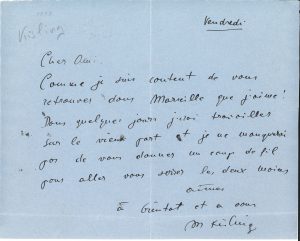 Kisling
Vendredi
Cher Ami
Comme je suis content de vous
retrouver dans Marseille que j'aime!
Dans quelques jours j'irai travailler
sur le vieux port et je ne manquerai
pas de vous donner un coup de fil
pour aller vous serrer les deux mains
amies
à bientot et a vous
M Kisling